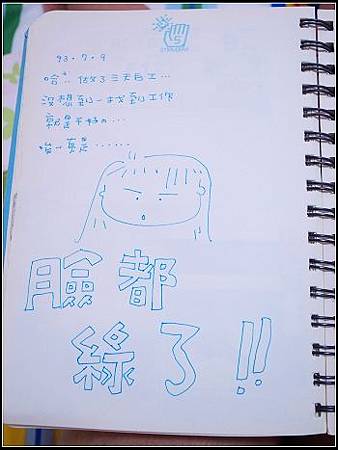 93.7.9
哈!! 做了三天白工...
沒想到一找到工作
就是不好的...
唉~真是......
臉都
綠了!!